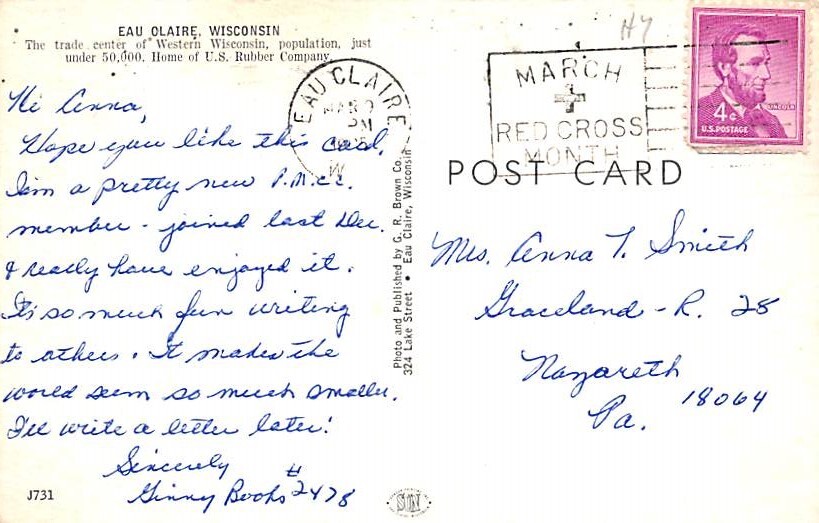 EAU CLAIRE, WISCONSIN
The trade center of Western Wisconsin, population, just
under 50,000. Home of U.S. Rubber Company.
Hi Anna,
Hope you like this card.
I'm a pretty new P.M.C.C.
member - joined last Dec.
& really have enjoyed it.
It's so much fun writing
to others. It makes the
world seem so much smaller.
I'll write a letter later!
Sincerely
Ginny Books #2478
J731
EAU CLAIRE
MAR
PM
W
Photo and Published by G. R. Brown Co.
324 Lake Street • Eau Claire, Wisconsin
MARCH
RED CROSS
MONTH
LINCOLN
4¢
U.S. POSTAGE
POST CARD
Mrs. Anna T. Smith
Graceland - R. 28
Nazareth
Pa. 18064